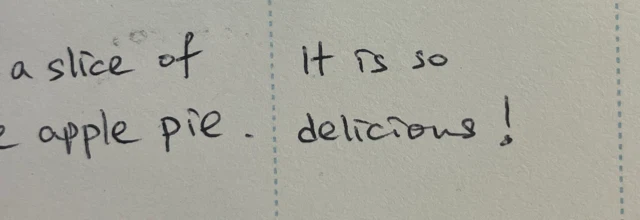 a slice of
apple pie.
It is so
delicious!